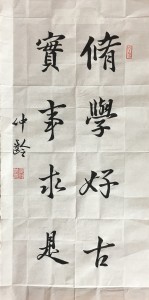 脩學好古
實事求是
仲齡